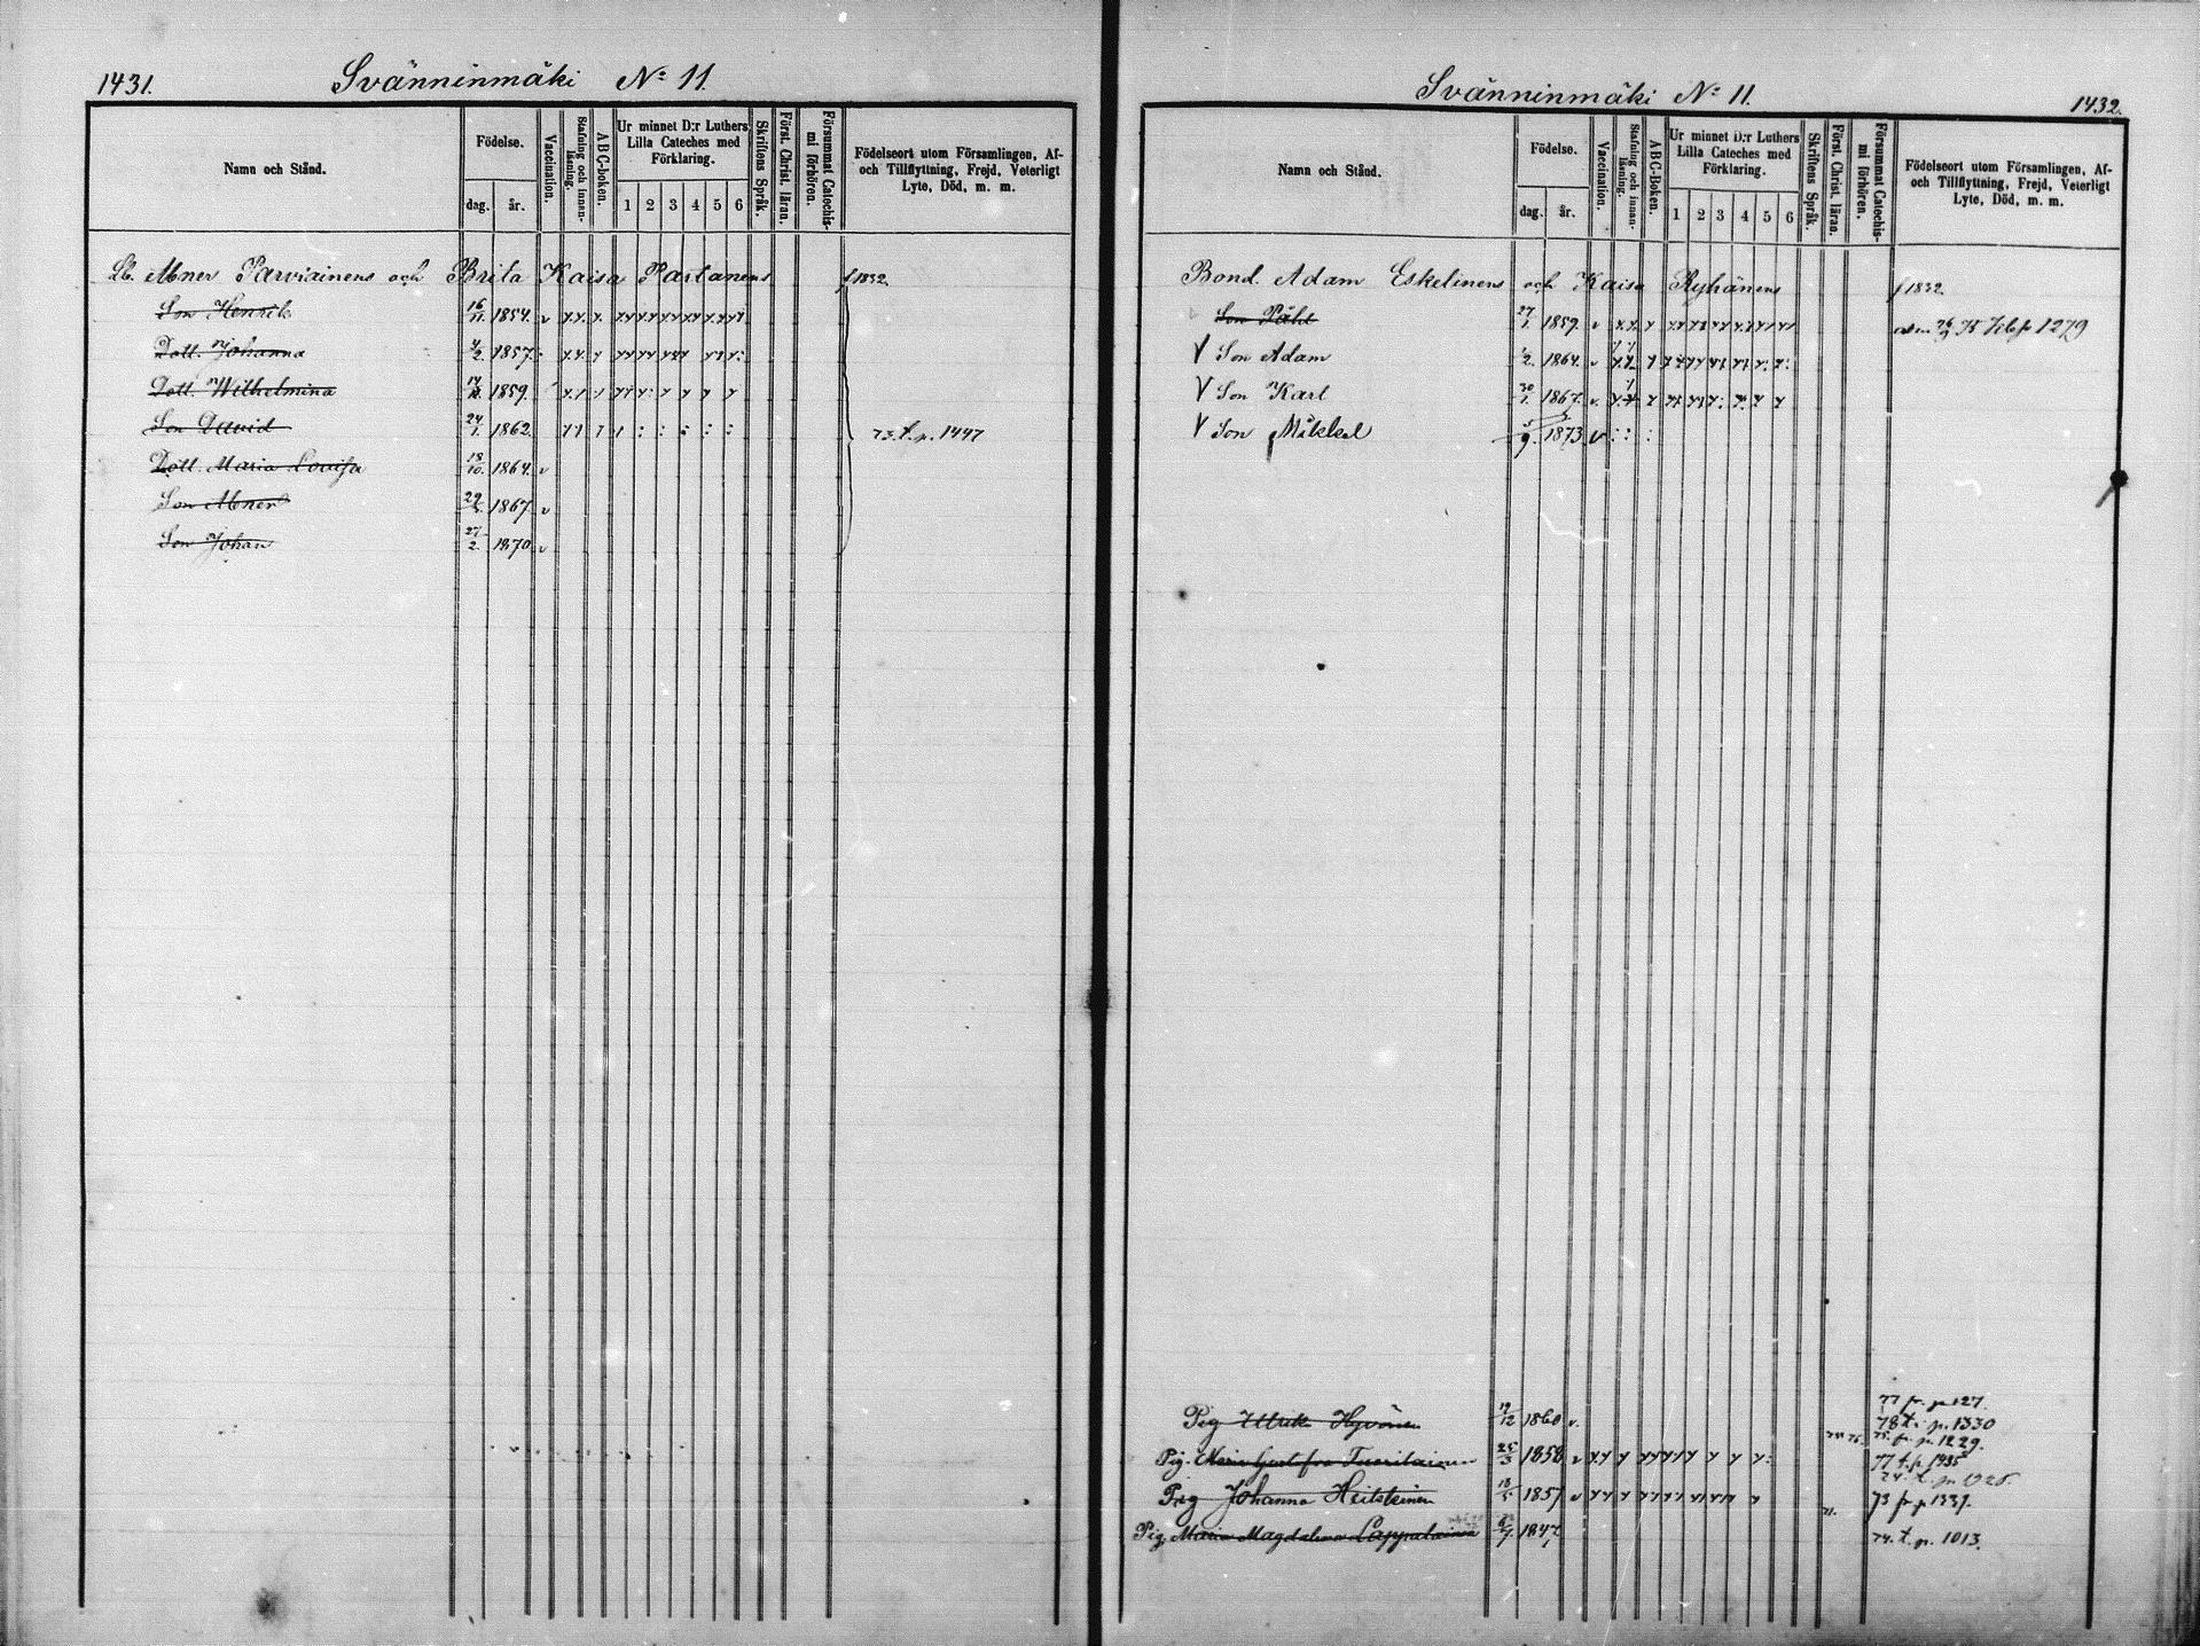 1431.
Svänninmäki No 11.
Namn och Stånd.
Födelse.
dag.
år.
Vaccination.
Stafning och innanläsning.
ABC-boken.
Ur minnet D:r Luthers
Lilla Cateches med
Förklaring.
1 2 3 4 5 6
Skriftens Språk.
Först. Christ. läran.
Försummat Catechismi förhören.
Födelseort utom Församlingen, Af-
och Tillflyttning, Frejd, Veterligt
Lyte, Död, m. m.
Lb. Abner Parviainens och Brita Kaisa Partanens f 1832
Son Henrik 16/11. 1854. v
Dott. Johanna 4/2. 1857.
Dott. Wilhelmina 1859.
Son David 24/1. 1862. 73. t. p. 1447
Dott. Maria Lovisa 18/10. 1864. v
Son Abner 1867. v
Son Johan 27/2. 1870. v
Svänninmäki No 11.
1432.
Namn och Stånd.
Födelse.
dag.
år.
Vaccination.
Stafning och innanläsning.
ABC-Boken.
Ur minnet D:r Luthers
Lilla Cateches med
Förklaring.
1 2 3 4 5 6
Skriftens Språk.
Först. Christ. läran.
Försummat Catechismi förhören.
Födelseort utom Församlingen, Af-
och Tillflyttning, Frejd, Veterligt
Lyte, Död, m. m.
Bond. Adam Eskelinens och Kaisa Ryhänens f 1832
Son Påhl 27/1. 1859. v 1279
V Son Adam 1864. v
V Son Karl 30/1. 1867. v.
V Son Mikkel 9. 1873 v
77 fr. p. 127.
Pig Ulrik Hyvönen 19/12 1860 v. 78 t. p. 1330
75. fr. p. 1229.
Pig. Maria Tuovilainen 25/3 1858 v 77 t. p.
Pig Johanna Heiskainen 18/5 1857 v 73 fr p 1339.
Pig Maria Magdalena Lappalainen 1847. 74. t. p. 1013.